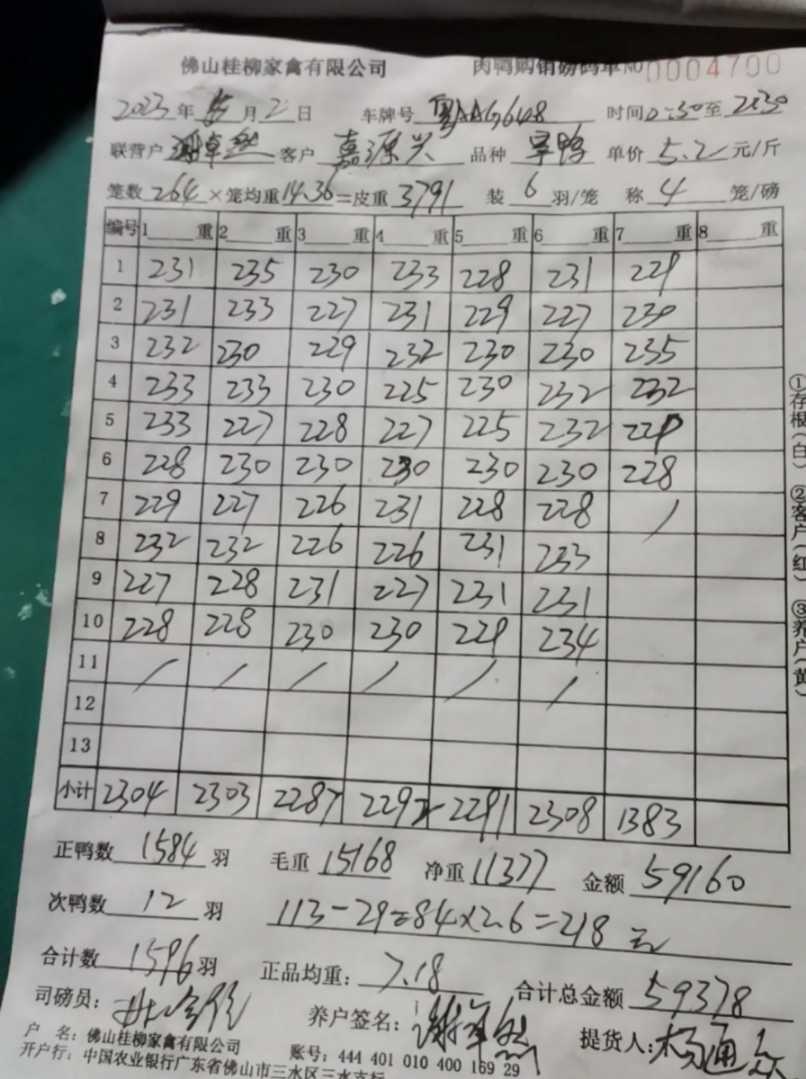 佛山桂柳家禽有限公司 肉鸭购销磅码单NO 0004700
2023年 月2日 车牌号 粤AAG648 时间 至
联营户 客户 嘉源兴 品种 单价5.2元/斤
笼数264×笼均重14.36=皮重3791 装6羽/笼 称4笼/磅
编号 1 重 2 重 3 重 4 重 5 重 6 重 7 重 8 重
1 231 235 230 233 228 231 229
2 231 233 227 231 229 227 230
3 232 230 229 232 230 230 235
4 233 233 230 225 230 232 232
5 233 227 228 227 225 232 229
6 228 230 230 230 230 230 228
7 229 227 226 231 228 228 /
8 232 232 226 226 231 233
9 227 228 231 227 231 231
10 228 228 230 230 229 234
11 / / / / / /
12
13
小计 2304 2303 2287 2292 2291 2308 1383
正鸭数1584羽 毛重15168 净重11377 金额59160
次鸭数12羽 113-29=84×2.6=218元
合计数1596羽 正品均重:7.18 合计总金额59378
司磅员: 养户签名: 提货人:杨通
户 名:佛山桂柳家禽有限公司 账号:444 401 010 400 169 29
开户行:中国农业银行广东省佛山市三水区三水支行
①存根(白) ②客户(红) ③养户(黄)